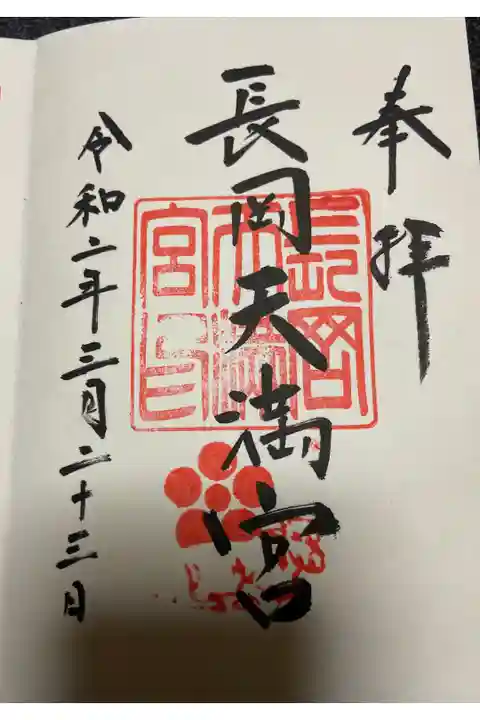 奉拝
長岡天満宮
令和二年三月二十三日
長岡
天満
宮印